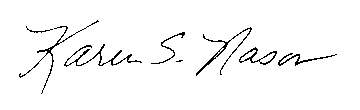 Karen S. Nason